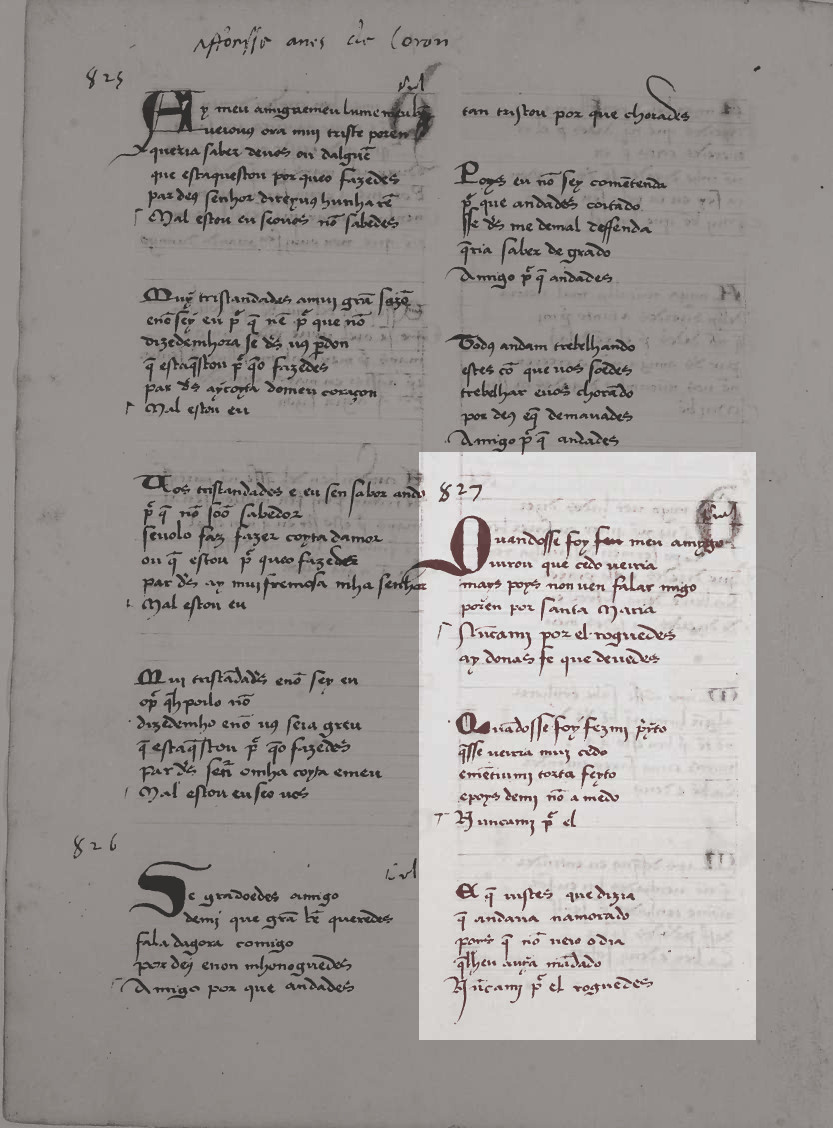 825
A y meu amigue meu lume meu bẽ
ueiouꝯ ora mui triste porẽ
queria saber deuos ou dalguẽ
que estaquestou por queo fazedes
par deꝯ senhor direyuꝯ hunha rẽ
Mal estou eu seouos nõ sabedes
Muy tristandades amui grã sazõ
enõ sey eu p̃ q̃ nẽ p̃ que nõ
dizedemhora se d̃s uꝯ p̃don
q̃ estaq̃stou p̃ q̃o fazedes
par d̃s ay coyta do meu coraçon
Mal estou eu
Uos tristandades e eu sen sabor ando
p̃ q̃ nõ sõo sabedor
seuolo faz fazer coyta damor
ou q̃ estou p̃ queo fazedes
par d̃s ay mui fremosa mha senhor
Mal estou eu
Mui tristãdad̃s enõ sey en
dizedemho enõ uꝯ seia greu
q̃ estaq̃stou p̃ q̃o fazedes
par d̃s señ omha coyta emeu
Mal estou eu seo uos
826
Se gradoedes amigo
demi que grã bẽ queredes
fala dagora comigo
por deꝯ enon mho neguedes
Amigo por que andades
tan tristou por que chorades
Poys eu nõ sey comẽtenda
p̃ que andades coitado
sse d̃s me demal deffenda
q̃ria saber de grado
Amigo p̃ q̃ andades
Todꝯ andam trebelhando
estes cõ que uos soẽdes
trebelhar euos chorãdo
por deꝯ eq̃ demandades
Amigo p̃ q̃ andades
827
Quandosse foy meu amigo
iurou que cedo ueiria
mays poys non uen falar migo
porẽn por santa Maria
Nũcami por el roguedes
ay donas fe que deuedes
Quãdosse foy fezmi p̃yto
q̃sse uerria mui cedo
emẽtiumi torta feyto
epoys demi nõ a medo
Nuncami p̃ el
El q̃ uistes que dizia
q̃ andaua namorado
poys q̃ nõ ueio o dia
q̃lheu auya mãdado
Nũcami p̃ el roguedes